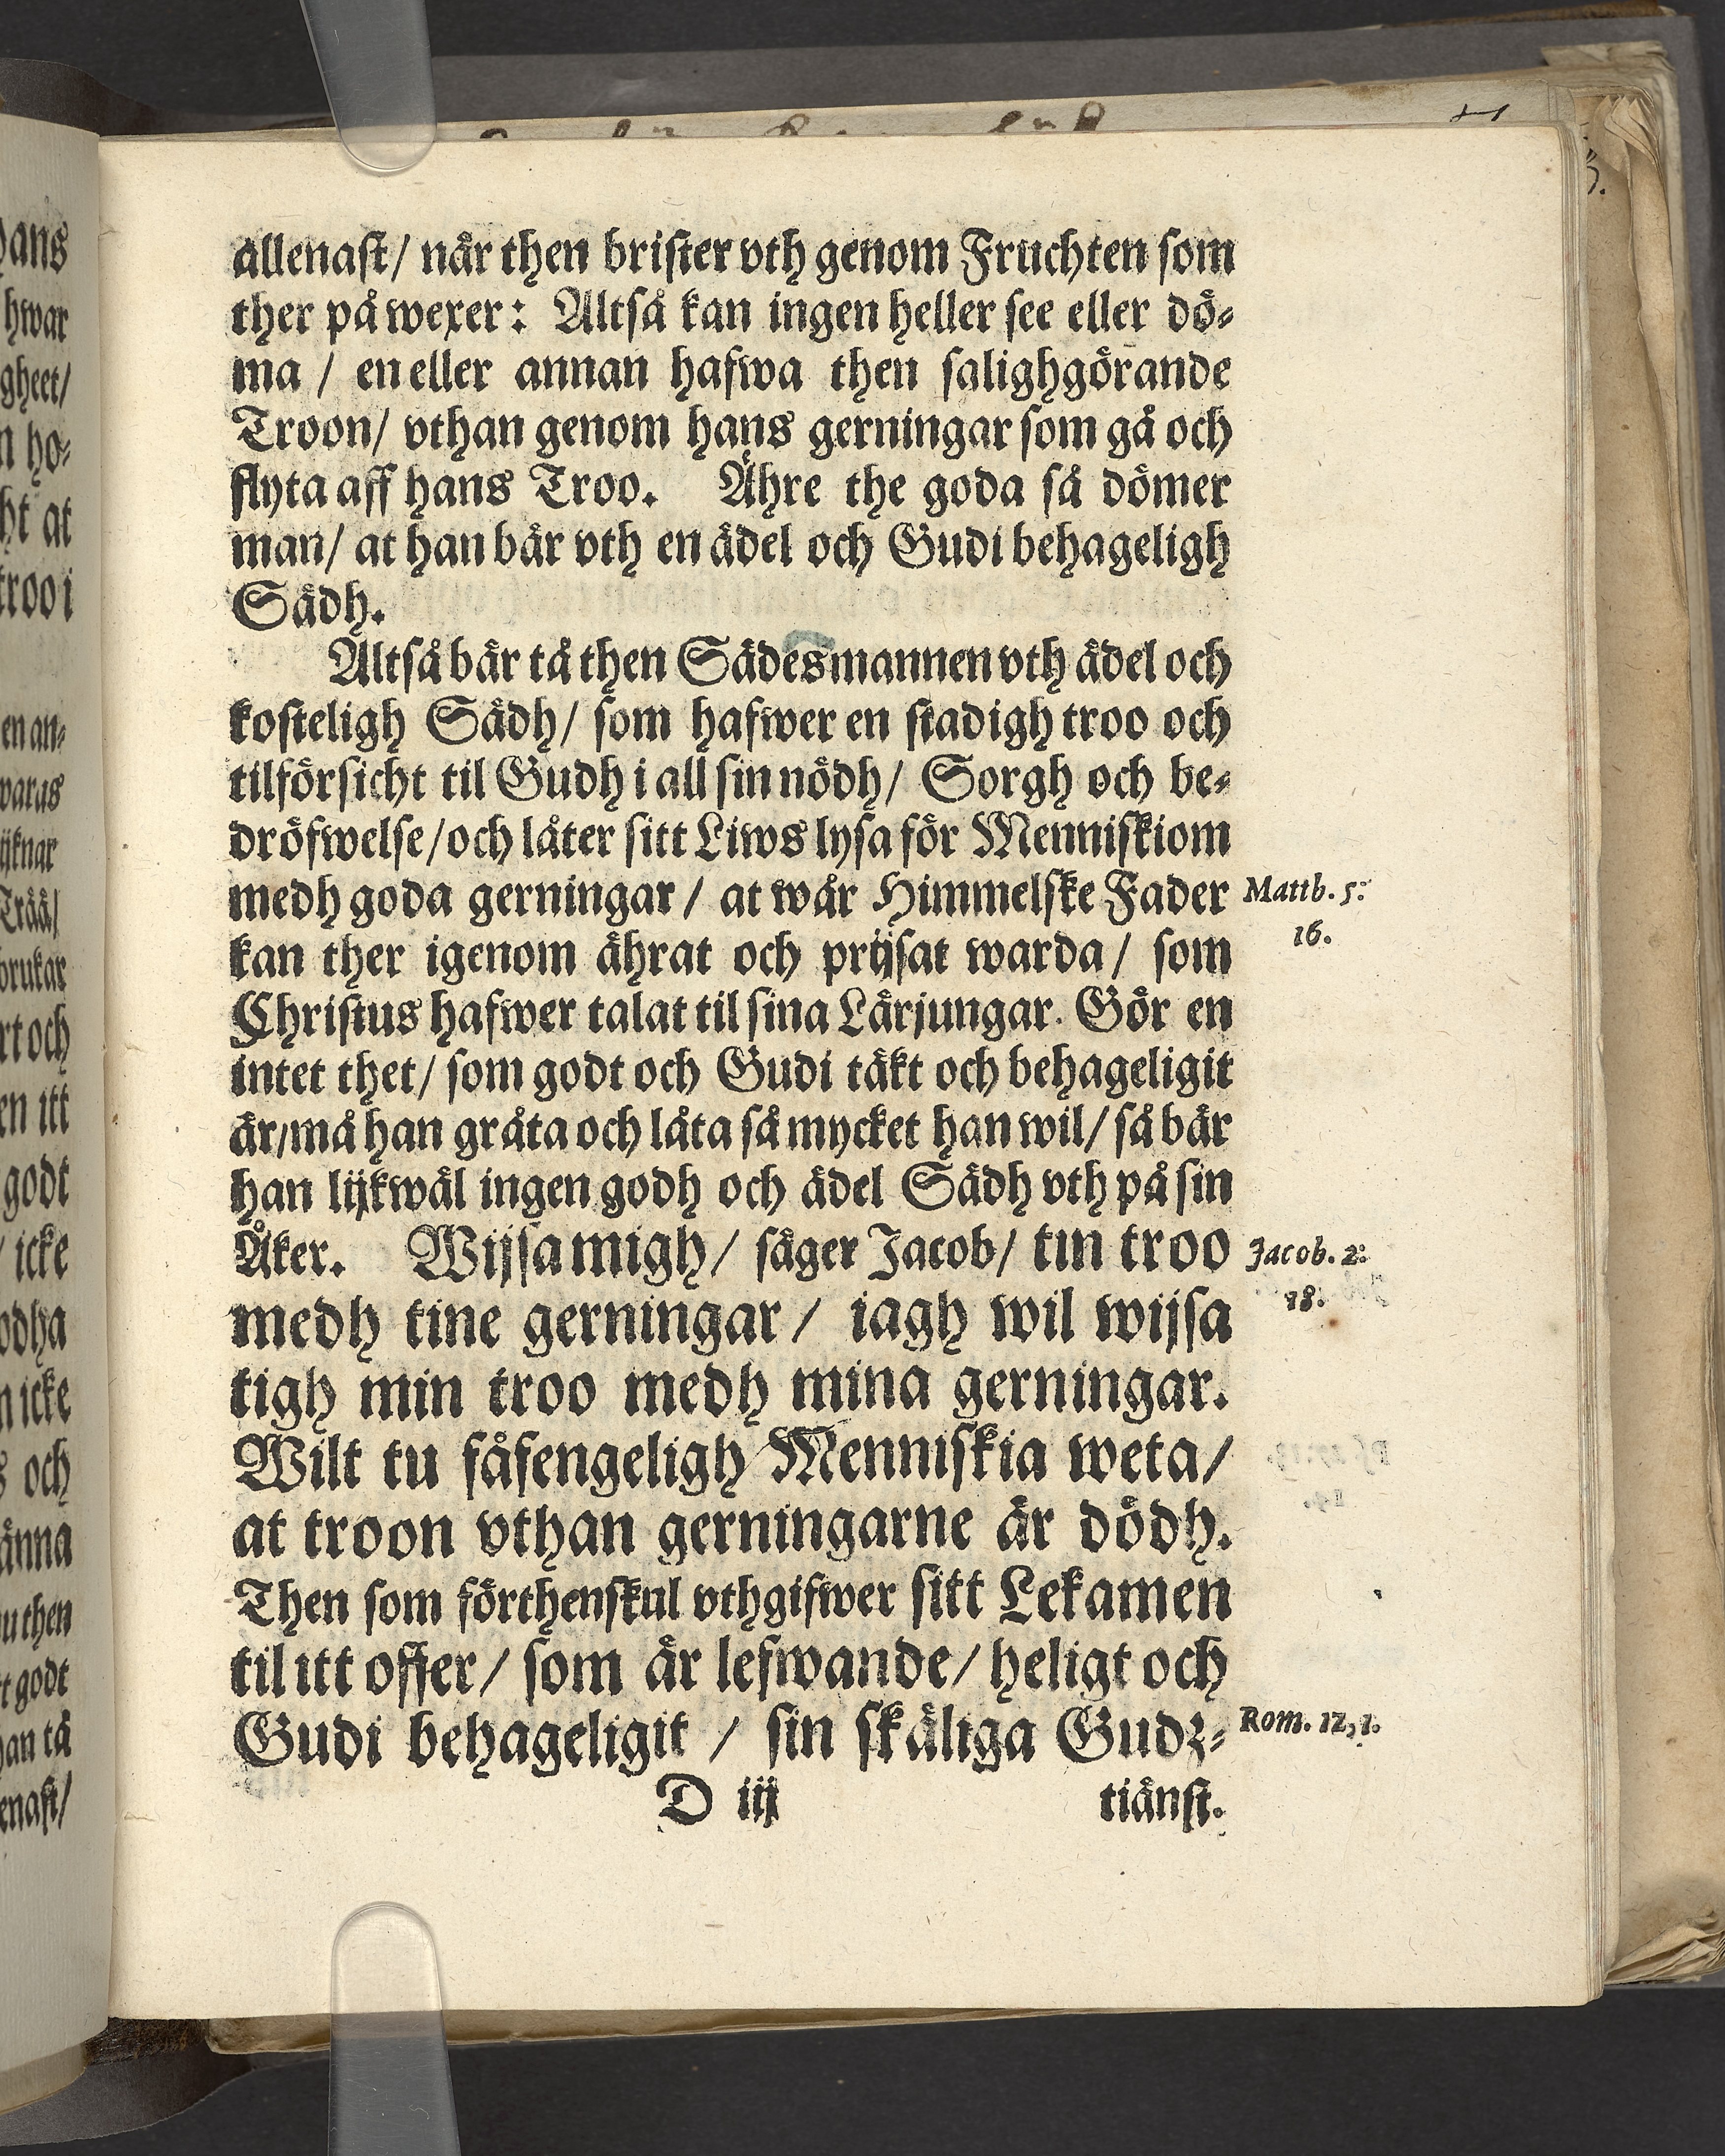 allenast/ når then brister vth genom Fruchten som
ther på wexer: Altså kan ingen heller see eller dö-
ma / en eller annan hafwa then salighgörande
Troon/ vthan genom hans gerningar som gå och
flyta aff hans Troo. Ähre the goda så dömer
man/ at han bär vth en ädel och Gudi behageligh
Sädh.
Altså bär tå then Sädesmannen vth ädel och
kosteligh Sädh/ som hafwer en stadigh troo och
tilförsicht til Gudh i all sin nödh/ Sorgh och be-
dröfwelse/ och låter sitt Liws lysa för Menniskiom
medh goda gerningar/ at wår Himmelske Fader
Matth. 5:
16.
kan ther igenom ährat och prijsat warda/ som
Christus hafwer talat til sina Lärjungar. Gör en
intet thet/ som godt och Gudi täkt och behageligit
är/ må han gråta och låta så mycket han wil/ så bär
han lijkwäl ingen godh och ädel Sädh vth på sin
Åker. Wijsa migh/ säger Jacob/ tin troo
Jacob. 2:
18.
medh tine gerningar/ iagh wil wijsa
tigh min troo medh mina gerningar.
Wilt tu fåfengeligh Menniskia weta/
at troon vthan gerningarne är dödh.
Then som förthenskul vthgifwer sitt Lekamen
til itt offer/ som är lefwande/ heligt och
Gudi behageligit / sin skäliga Gudz-
Rom. 12, 1.
D iij
tiänst.